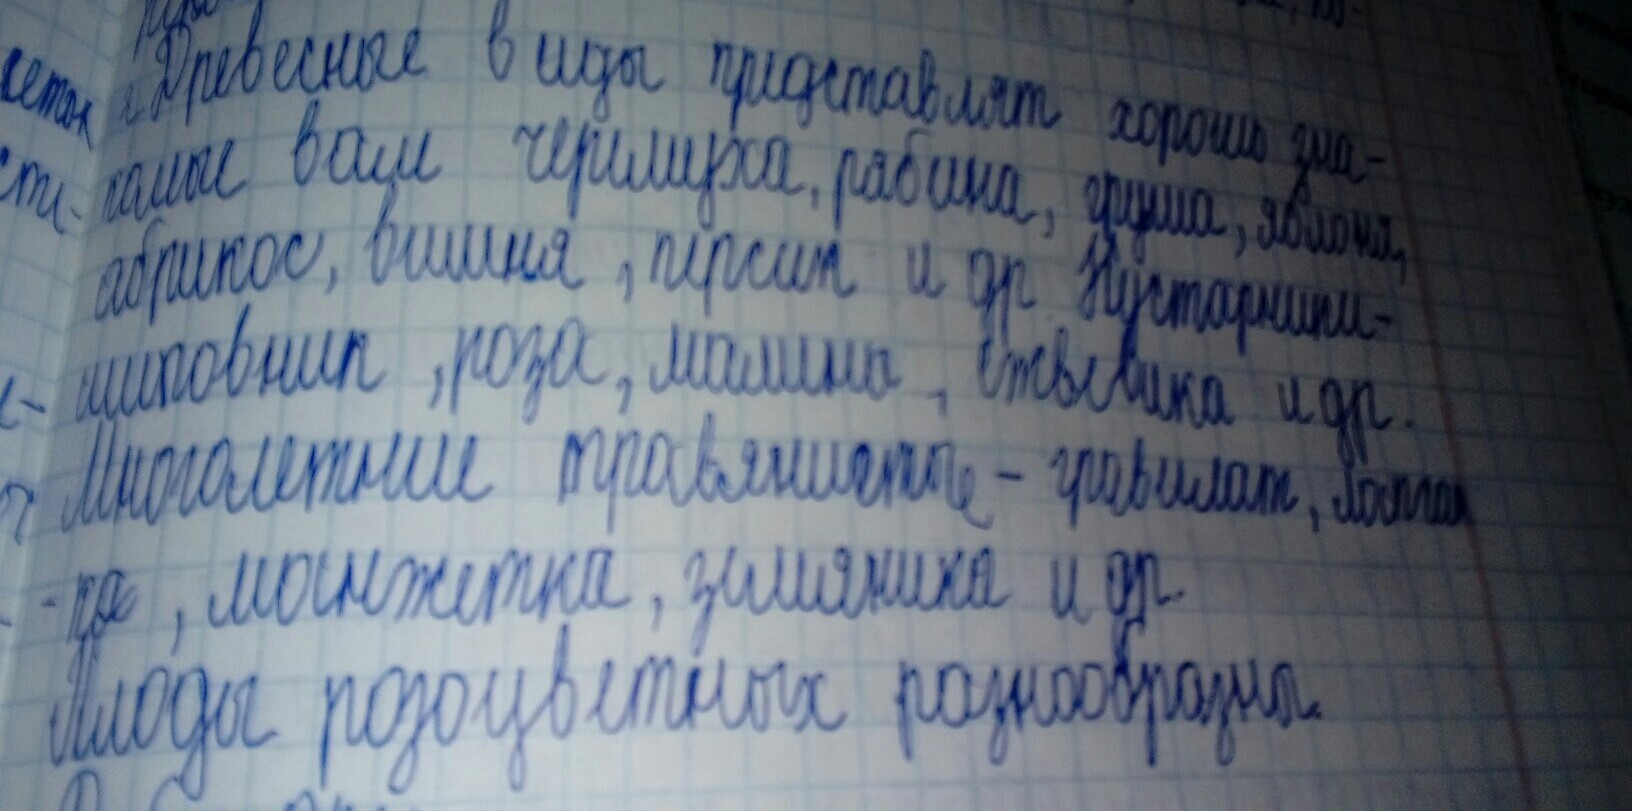 сеток
сти-
Древесные виды представлят хорошо зна-
комые вам черемуха, рябина, груша, яблоня,
абрикос, вишня, персик и др Кустарники-
шиповник, роза, малина, ежевика и др.
Многолетние травянистые - гравилат, лапчат
-ка, манжетка, земляника и др.
Плоды розоцветных разнообразны.